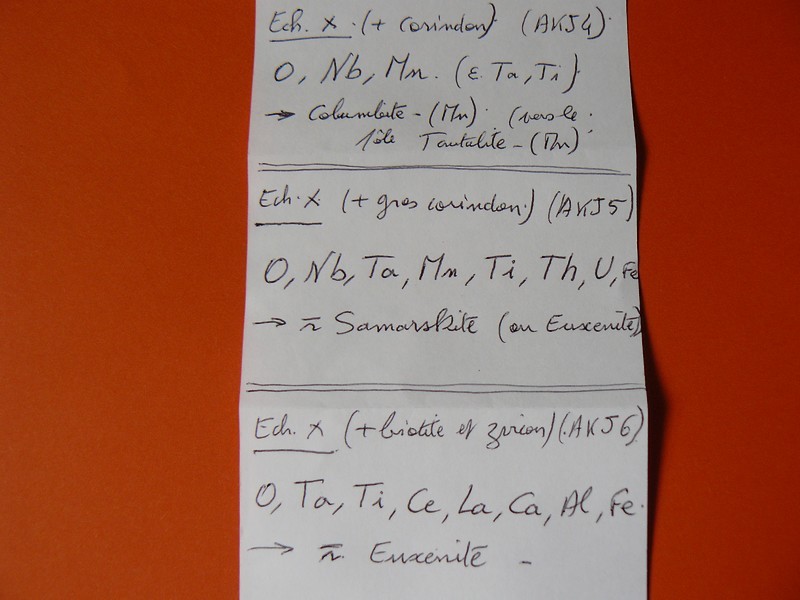 Ech. X. (+ corindon). (AKJ4).
O, Nb, Mn. (ε. Ta, Ti).
→ Columbite - (Mn). (vers le.
Pôle Tantalite - (Mn)
Ech. X. (+ gros corindon.) (AKJ5)
O, Nb, Ta, Mn, Ti, Th, U, Fe
→ Samarskite (ou Euxenite)
Ech. X (+ biotite et zircon) (AKJ6)
O, Ta, Ti, Ce, La, Ca, Al, Fe.
→ Euxenite -